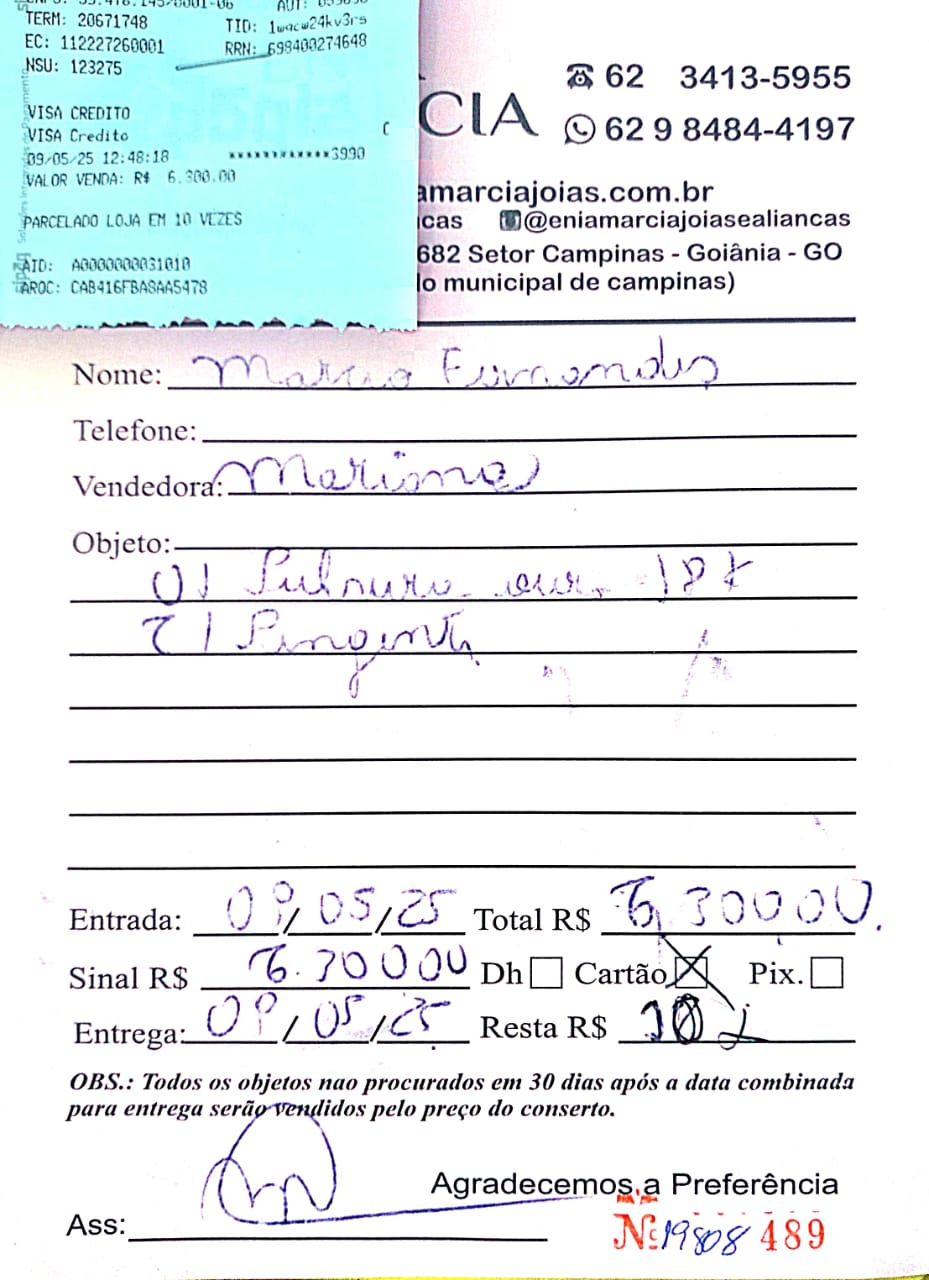 TERM: 20671748
TID: 1wacw24kv3rs
EC: 112227260001
RRN: 698400274648
NSU: 123275
VISA CREDITO
VISA Credito
09/05/25 12:48:18 ************3990
VALOR VENDA: R$ 6.300.00
PARCELADO LOJA EM 10 VEZES
AID: A0000000031010
AROC: CAB416FBA8AA5478
62 3413-5955
CIA
62 9 8484-4197
amarciajoias.com.br
cas @eniamarciajoiasealiancas
682 Setor Campinas - Goiânia - GO
o municipal de campinas)
Nome: Marcio Fernandes
Telefone:
Vendedora: Mariana
Objeto:
01 Pulseira ouro 18k
01 Pingente
Entrada: 09/05/25 Total R$ 6.30000.
Sinal R$ 6.30000 Dh Cartão X Pix.
Entrega: 09/05/25 Resta R$ 10x
OBS.: Todos os objetos nao procurados em 30 dias após a data combinada
para entrega serão vendidos pelo preço do conserto.
Agradecemos a Preferência
Ass:
Nº 19808 489